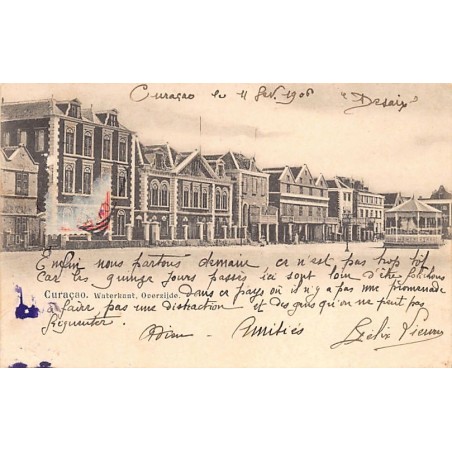 Curaçao le 11 Fev. 1906 "Desaix"
Enfin nous partons demain ce n'est pas trop tôt
Car les quinze jours passés ici sont loin d'être folichons
Curaçao. Waterkant, Overzijde.
Dans ce pays où il n'y a pas une promenade
à faire, pas une distraction et des gens qu'on ne peut pas
fréquenter.
Adieu Amitiés Félix